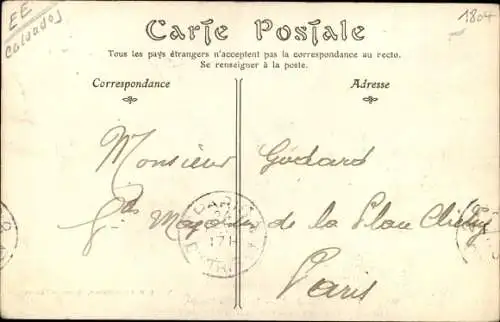 EE
Calvados
1804
Carte Postale
Tous les pays étrangers n'acceptent pas la correspondance au recto.
Se renseigner à la poste.
Correspondance
Adresse
Monsieur Godard
Gds Magasins de la Place Clichy
Paris